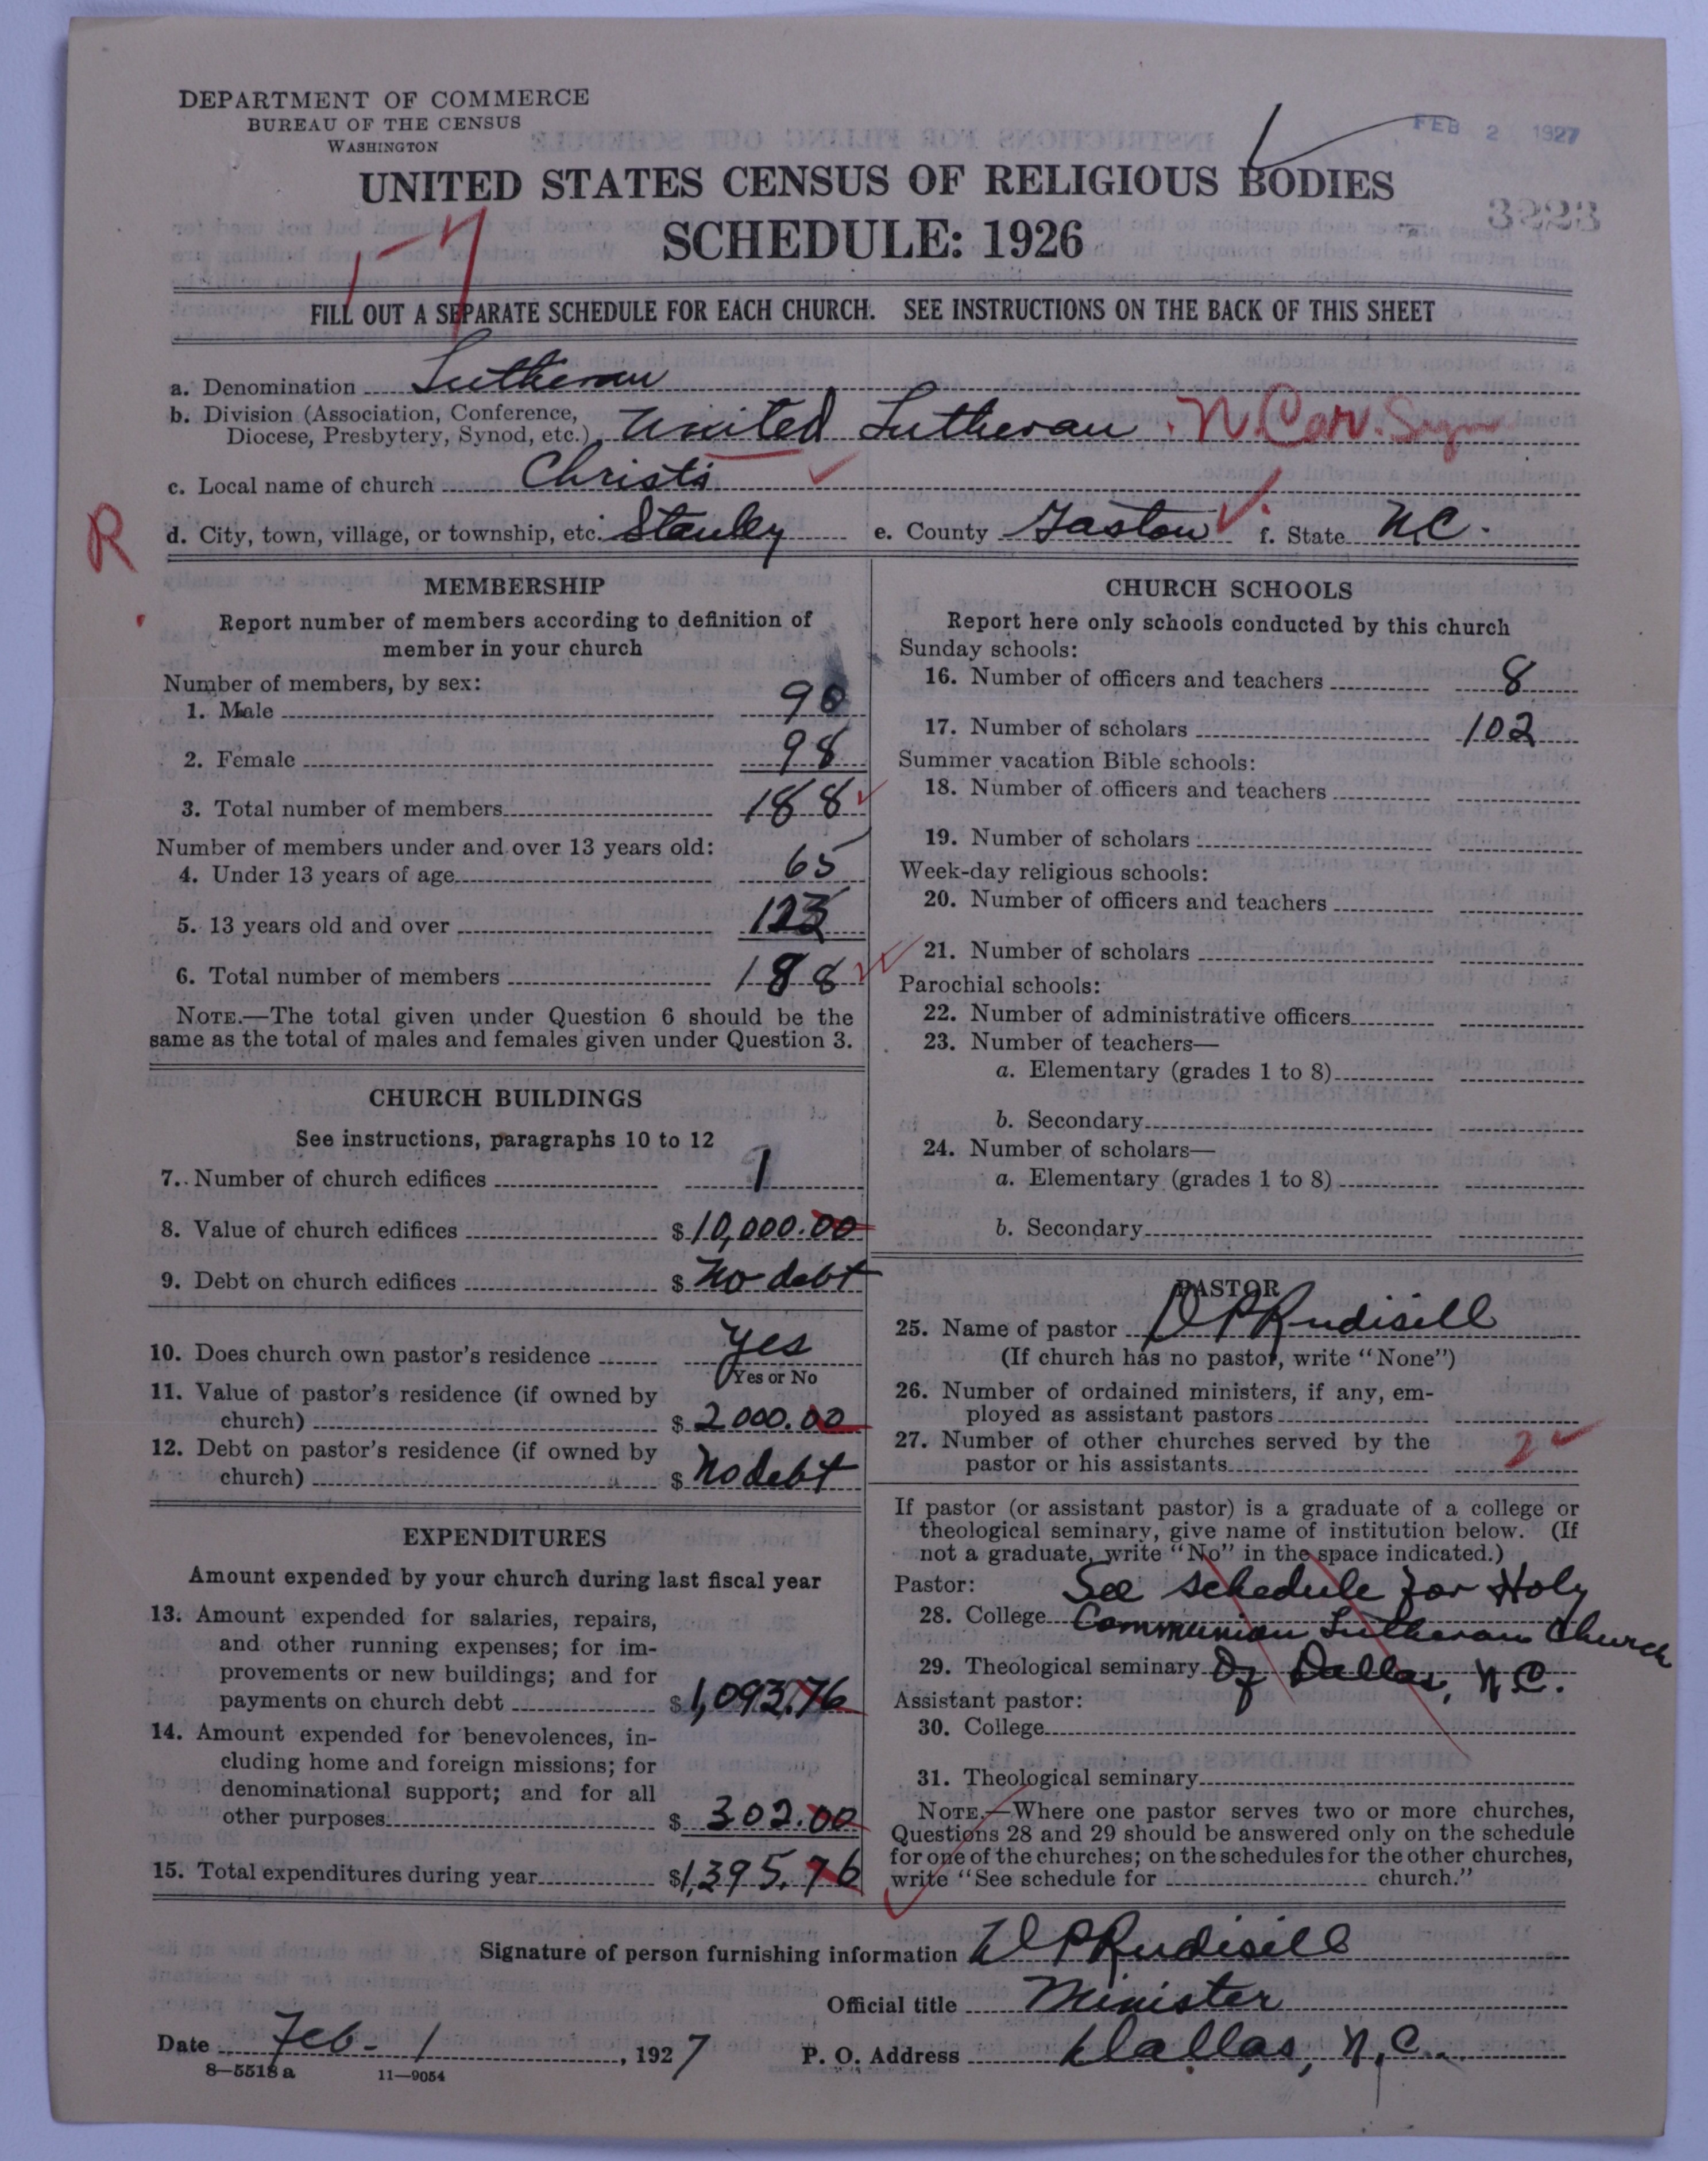 DEPARTMENT OF COMMERCE
BUREAU OF THE CENSUS
WASHINGTON
FEB 2 1927
UNITED STATES CENSUS OF RELIGIOUS BODIES
3223
SCHEDULE: 1926
1-7
FILL OUT A SEPARATE SCHEDULE FOR EACH CHURCH. SEE INSTRUCTIONS ON THE BACK OF THIS SHEET
a. Denomination Lutheran
b. Division (Association, Conference,
Diocese, Presbytery, Synod, etc.) United Lutheran. N. Car.
c. Local name of church Christ's
R
d. City, town, village, or township, etc. Stanley e. County Gaston f. State N.C.
MEMBERSHIP
Report number of members according to definition of
member in your church
Number of members, by sex:
1. Male 90
2. Female 98
3. Total number of members 188
Number of members under and over 13 years old:
4. Under 13 years of age 65
5. 13 years old and over 123
6. Total number of members 188
NOTE.—The total given under Question 6 should be the
same as the total of males and females given under Question 3.
CHURCH BUILDINGS
See instructions, paragraphs 10 to 12
7. Number of church edifices 1
8. Value of church edifices $10,000.00
9. Debt on church edifices $ No debt
10. Does church own pastor's residence Yes
Yes or No
11. Value of pastor's residence (if owned by
church) $ 2000.00
12. Debt on pastor's residence (if owned by
church) $ No debt
EXPENDITURES
Amount expended by your church during last fiscal year
13. Amount expended for salaries, repairs,
and other running expenses; for im-
provements or new buildings; and for
payments on church debt $1,093.76
14. Amount expended for benevolences, in-
cluding home and foreign missions; for
denominational support; and for all
other purposes $ 302.00
15. Total expenditures during year $1,395.76
CHURCH SCHOOLS
Report here only schools conducted by this church
Sunday schools:
16. Number of officers and teachers 8
17. Number of scholars 102
Summer vacation Bible schools:
18. Number of officers and teachers
19. Number of scholars
Week-day religious schools:
20. Number of officers and teachers
21. Number of scholars
Parochial schools:
22. Number of administrative officers
23. Number of teachers—
a. Elementary (grades 1 to 8)
b. Secondary
24. Number of scholars—
a. Elementary (grades 1 to 8)
b. Secondary
PASTOR
25. Name of pastor D P Rudisill
(If church has no pastor, write "None")
26. Number of ordained ministers, if any, em-
ployed as assistant pastors
27. Number of other churches served by the
pastor or his assistants 2
If pastor (or assistant pastor) is a graduate of a college or
theological seminary, give name of institution below. (If
not a graduate, write "No" in the space indicated.)
Pastor: See schedule for Holy
28. College Communion Lutheran Church
29. Theological seminary Of Dallas, N.C.
Assistant pastor:
30. College
31. Theological seminary
NOTE.—Where one pastor serves two or more churches,
Questions 28 and 29 should be answered only on the schedule
for one of the churches; on the schedules for the other churches,
write "See schedule for church."
Signature of person furnishing information D P Rudisill
Official title Minister
Date Feb-1, 1927 P. O. Address Dallas, N.C.
8—5518 a 11—9054